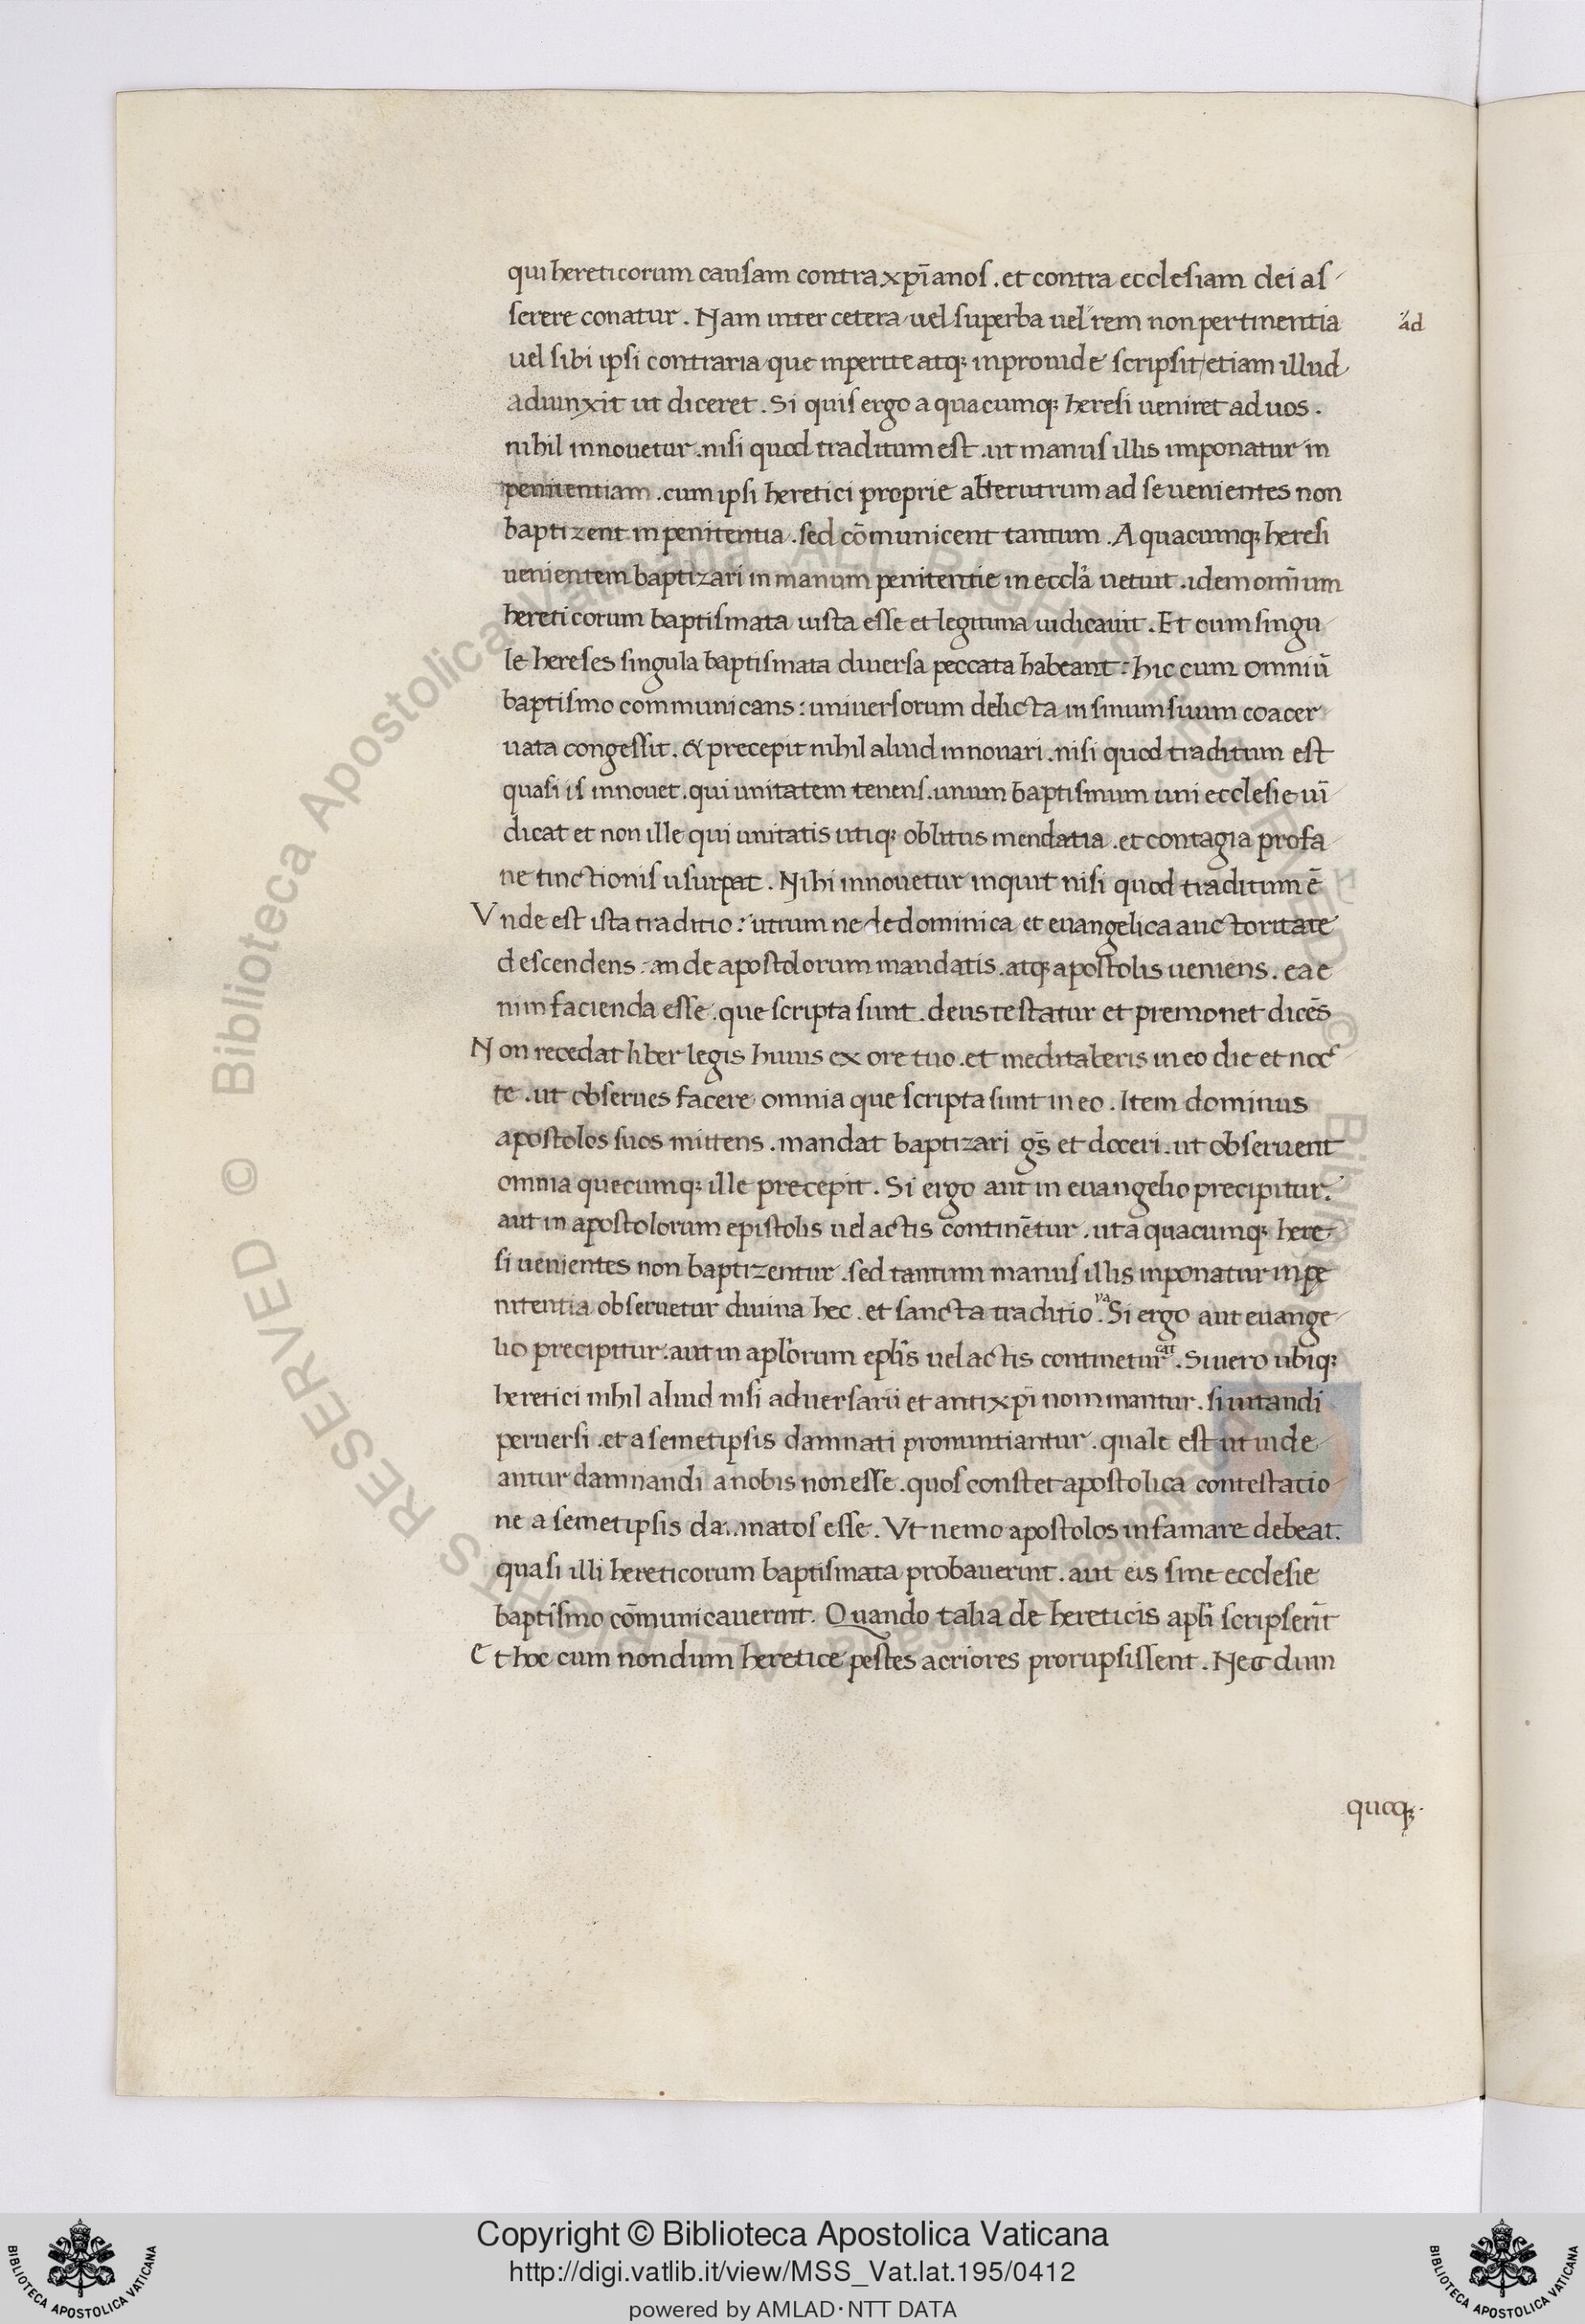 qui hereticorum causam contra xp̄ianos . et contra ecclesiam dei as
serere conatur . Nam inter cetera uel superba uel rem non pertinentia
ad
uel sibi ipsi contraria que inperite atq; inprouide scripsit etiam illud
adiunxit ut diceret . Si quis ergo a quacumq; heresi ueniret ad uos .
nihil innouetur . nisi quod traditum est . ut manus illis imponatur in
penitentiam . cum ipsi heretici proprie alterutrum ad se uenientes non
baptizent in penitentia . sed cōmunicent tantum . A quacumq; heresi
uenientem baptizari in manum penitentie in eccl̄a uetuit . idem om̄ium
hereticorum baptismata iusta esse et legitima iudicauit . Et cum singu
le hereses singula baptismata diuersa peccata habeant : hic cum omniū
baptismo communicans : uniuersorum delicta in sinum suum coacer
uata congessit . & precepit nihil aliud innouari . nisi quod traditum est
quasi is innouet . qui unitatem tenens . unum baptismum uni ecclesie uī
dicat et non ille qui unitatis utiq; oblitus mendatia . et contagia profa
ne tinctionis usurpat . Nihi innouetur inquit nisi quod traditum ē
Vnde est ista traditio : utrum ne de dominica et euangelica auctoritate
descendens : an de apostolorum mandatis . atq; apostolis ueniens . ea e
nim facienda esse . que scripta sunt . deus testatur et premonet dicēs
Non recedat liber legis huius ex ore tuo . et meditaberis in eo die et noc
te . ut obserues facere omnia que scripta sunt in eo . Item dominus
apostolos suos mittens . mandat baptizari gs̄ et doceri . ut obseruent
omnia quecumq; ille precepit . Si ergo aut in euangelio precipitur .
aut in apostolorum epistolis uel actis continētur . ut a quacumq; here
si uenientes non baptizentur . sed tantum manus illis inponatur in pe
nitentia obseruetur diuina hec . et sancta traditio . va Si ergo aut euange
lio precipitur . aut in apl̄orum epl̄is uel actis continetur cat . Si uero ubiq;
heretici nihil aliud nisi aduersarii et antixp̄i nominantur . si uitandi
peruersi . et a semetipsis damnati pronuntiantur . quale est ut uide
antur damnandi a nobis non esse . quos constet apostolica contestatio
ne a semetipsis da..matos esse . Vt nemo apostolos infamare debeat .
quasi illi hereticorum baptismata probauerint . aut eis sine ecclesie
baptismo cōmunicauerint . Quando talia de hereticis apl̄i scripserīt
Et hoc cum nondum heretice pestes acriores prorupsissent . Nec dum
quoq;
Copyright © Biblioteca Apostolica Vaticana
http://digi.vatlib.it/view/MSS_Vat.lat.195/0412
powered by AMLAD·NTT DATA
BIBLIOTECA APOSTOLICA VATICANA
BIBLIOTECA APOSTOLICA VATICANA
© Biblioteca Apostolica Vaticana ALL RIGHTS RESERVED